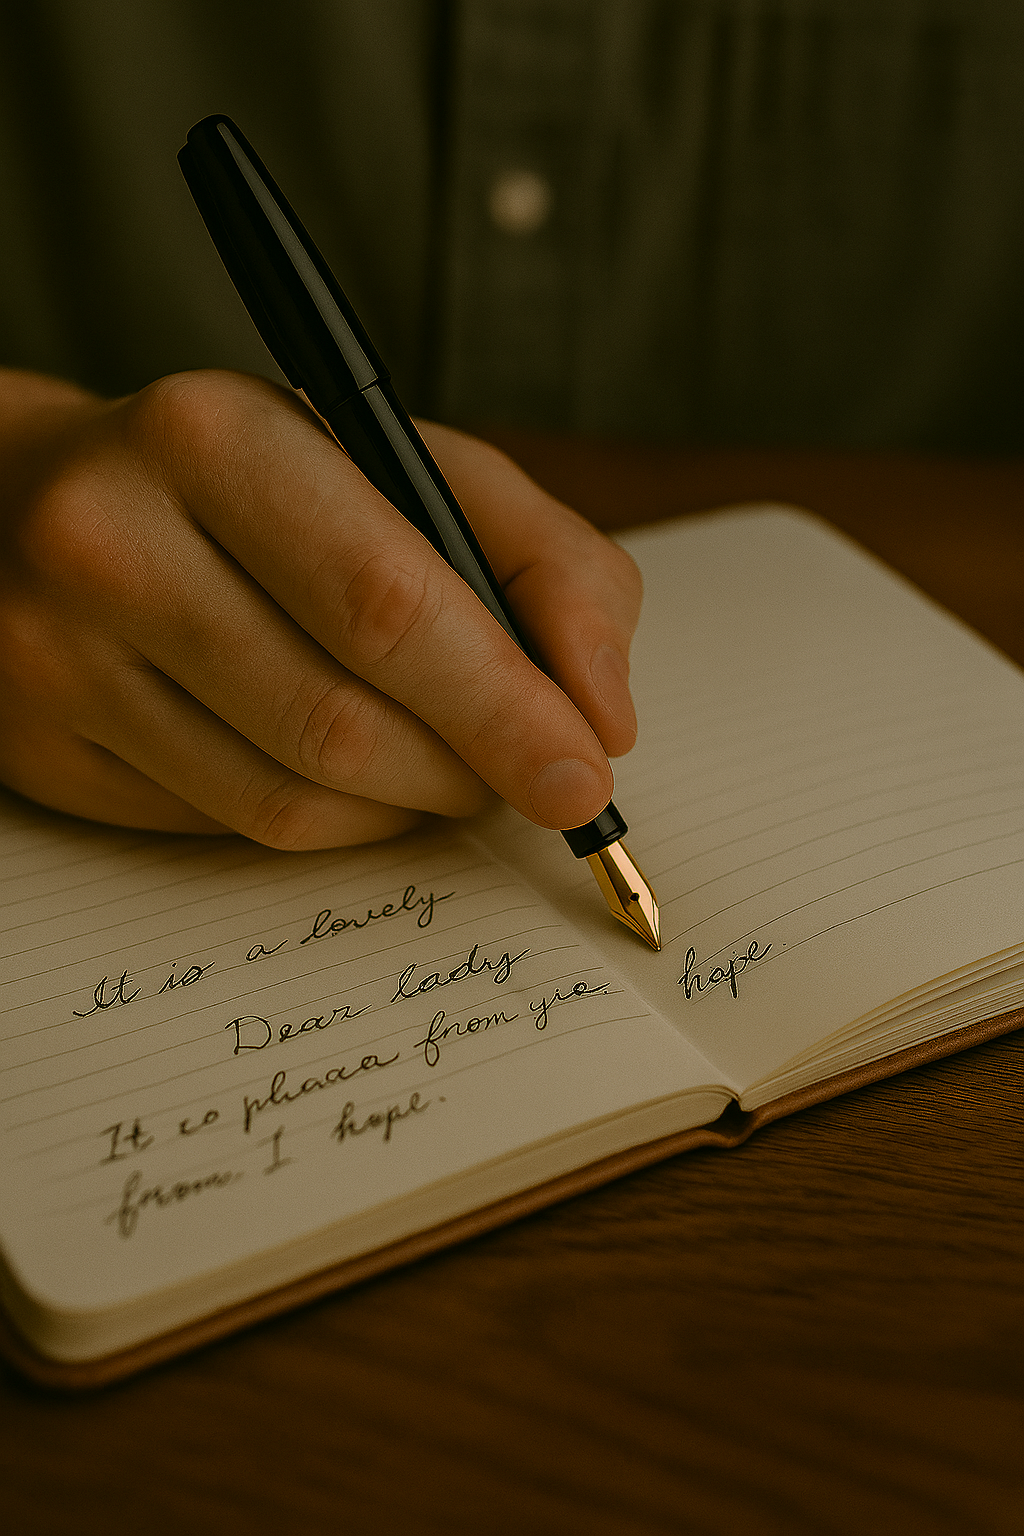 It is a lovely
Dear lady
It co phaaa from yio.
from. I hope.
hope